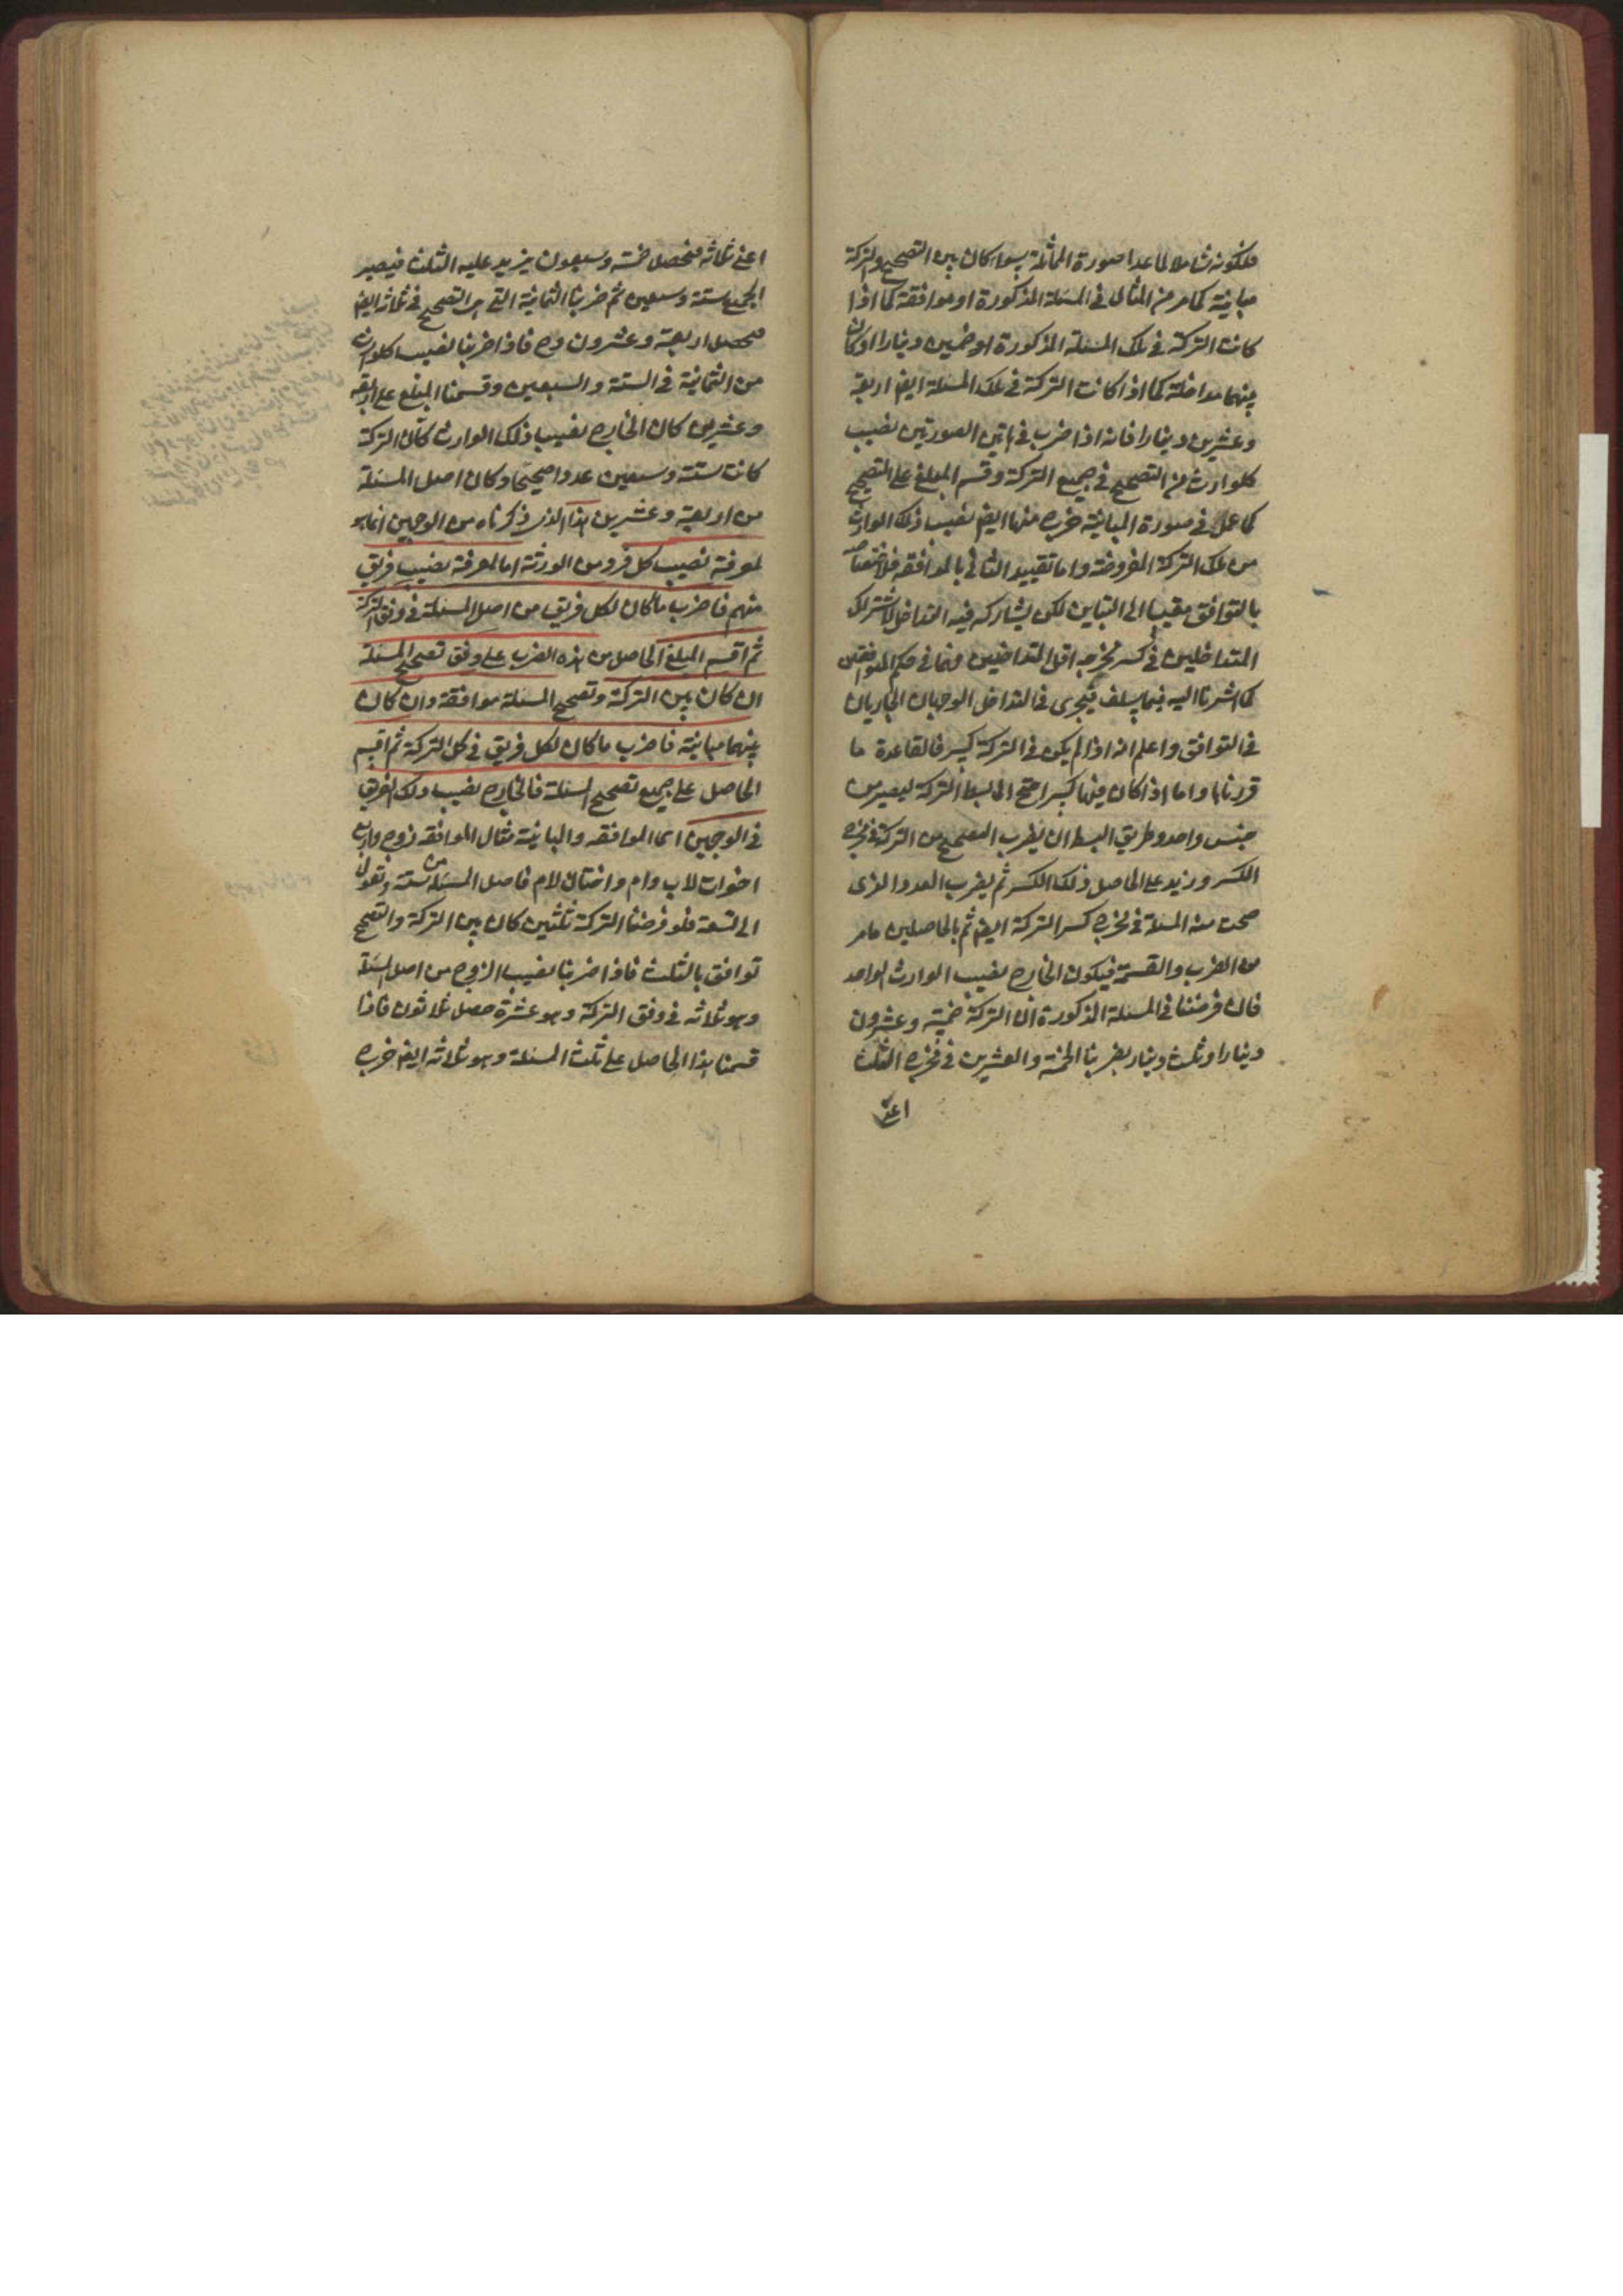 فلكونه شاملا لما عدا صورة المماثلة سواء كان بين التصحيح والتركة
مباينة كما مر من المثال في المسئلة المذكورة او موافقة كما اذا
كانت التركة في تلك المسئلة المذكورة او خمسين دينارا او كان
بينهما مداخلة كما اذا كانت التركة في تلك المسئلة ايضا اربعة
وعشرين دينارا فانه اذا ضرب في هاتين الصورتين نصيب
كل وارث من التصحيح في جميع التركة وقسم المبلغ على التصحيح
كما عمل في صورة المباينة خرج منها ايضا نصيب ذلك الوارث
من تلك التركة المفروضة واما تقييد الثاني بالموافقة فلاختصاصه
بالتوافق مقيسا الى التباين لكن يشاركه فيه التداخل لاشتراك
المتداخلين في كسر مخرجه اقل المتداخلين فهما في حكم المتوافقين
كما اشرنا اليه فيما سلف فيجرى في التداخل الوجهان الجاريان
في التوافق واعلم انه اذا لم يكن في التركة كسر فالقاعدة ما
قررناها واما اذا كان فيها كسر احتيج الى بسط التركة ليصير من
جنس واحد وطريق البسط ان يضرب الصحيح من التركة في مخرج
الكسر وزيد على الحاصل ذلك الكسر ثم يضرب العدد الذى
صحت منه المسئلة في مخرج كسر التركة ايضا ثم بالحاصلين ما مر
من الضرب والقسمة فيكون الخارج نصيب الوارث الواحد
فان فرضنا في المسئلة المذكورة ان التركة خمسة وعشرون
دينارا وثلث دينار يضربنا الخمسة والعشرين في مخرج الثلث
اعنى
اعنى ثلاثه فحصل خمسة وسبعون يزيد عليه الثلث فيصير
الجميع ستة وسبعين ثم ضربنا الثمانية التى هى التصحيح في ثلاثة ايضا
فحصل اربعة وعشرون وح فاذا ضربنا نصيب كل وارث
من الثمانية في الستة والسبعين وقسمنا المبلغ على اربعة
وعشرين كان الخارج نصيب ذلك الوارث كأن التركة
كانت ستة وسبعين عددا صحيحا وكان اصل المسئلة
من اربعة وعشرين هذا الذى ذكرناه من الوجهين انما هو
لمعرفة نصيب كل فرد من الورثة اما لمعرفة نصيب فريق
منهم فاضرب ما كان لكل فريق من اصل المسئلة في وفق التركة
ثم اقسم المبلغ الحاصل من هذه الضرب على وفق تصحيح المسئلة
ان كان بين التركة وتصحيح المسئلة موافقة وان كان
بينهما مباينة فاضرب ما كان لكل فريق في كل التركة ثم اقسم
الحاصل على جميع تصحيح المسئلة فالخارج نصيب ذلك الفريق
في الوجهين اى الموافقه والمباينة مثال الموافقه زوج واربع
اخوات لاب وام واختان لام فاصل المسئلة من ستة وتعول
الى تسعة فلو فرضنا التركة ثلثين كان بين التركة والتصحيح
توافق بالثلث فاذا ضربنا نصيب الزوج من اصل المسئلة
وهو ثلاثه في وفق التركة وهو عشرة حصل ثلاثون فاذا
قسمنا هذا الحاصل على ثلث المسئلة وهو ثلاثه ايضا خرج